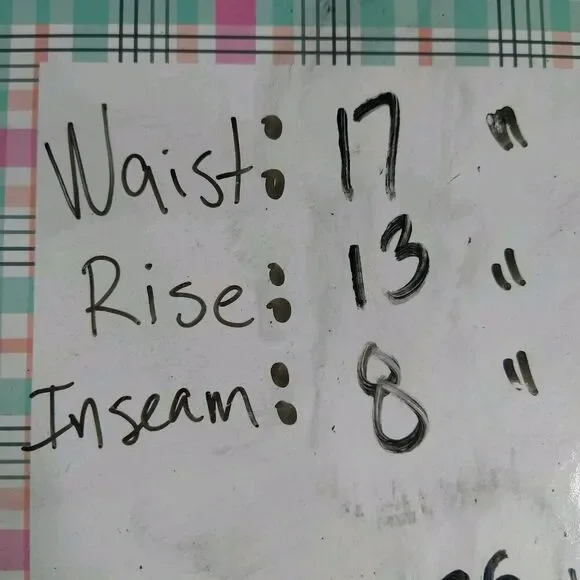 Waist: 17 "
Rise: 13 "
Inseam: 8 "